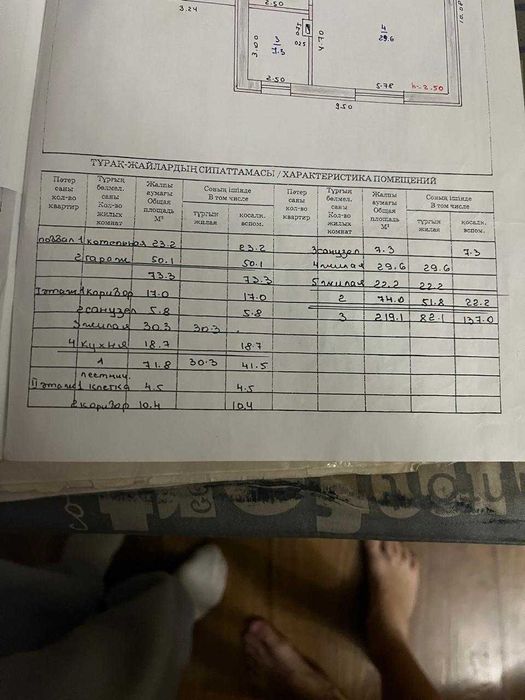 3.24
2.50
3
7.3
3.00
4
29.6
4.70
025
2.50
5.78
h=2.50
9.50
ТҰРАҚ-ЖАЙЛАРДЫҢ СИПАТТАМАСЫ / ХАРАКТЕРИСТИКА ПОМЕЩЕНИЙ
Пәтер саны кол-во квартир | Тұрғын бөлмел. саны Кол-во жилых комнат | Жалпы аумағы Общая площадь М² | Соның ішінде В том числе | тұрғын жилая | қосалқ. вспом. | Пәтер саны кол-во квартир | Тұрғын бөлмел. саны Кол-во жилых комнат | Жалпы аумағы Общая площадь М² | Соның ішінде В том числе | тұрғын жилая | қосалқ. вспом.
подвал 1 котельная 23.2 23.2 3 санузел 7.3 7.3
2 гараж 50.1 50.1 4 жилая 29.6 29.6
73.3 73.3 5 жилая 22.2 22.2
I этаж 1 коридор 17.0 17.0 2 74.0 51.8 22.2
2 санузел 5.8 5.8 3 219.1 82.1 137.0
3 жилая 30.3 30.3
4 кухня 18.7 18.7
1 71.8 30.3 41.5
лестнич.
II этаж 1 клетка 4.5 4.5
2 коридор 10.4 10.4